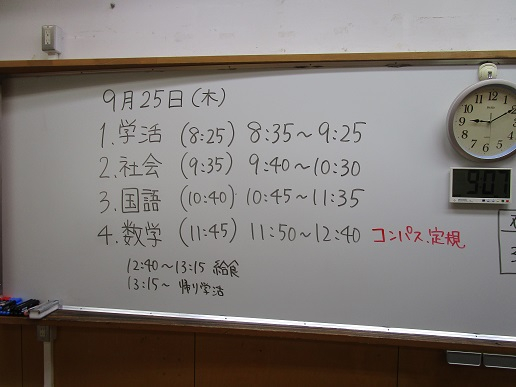 9月25日(木)
1.学活 (8:25) 8:35～9:25
2.社会 (9:35) 9:40～10:30
3.国語 (10:40) 10:45～11:35
4.数学 (11:45) 11:50～12:40 コンパス.定規
12:40～13:15 給食
13:15～ 帰り学活
9:07